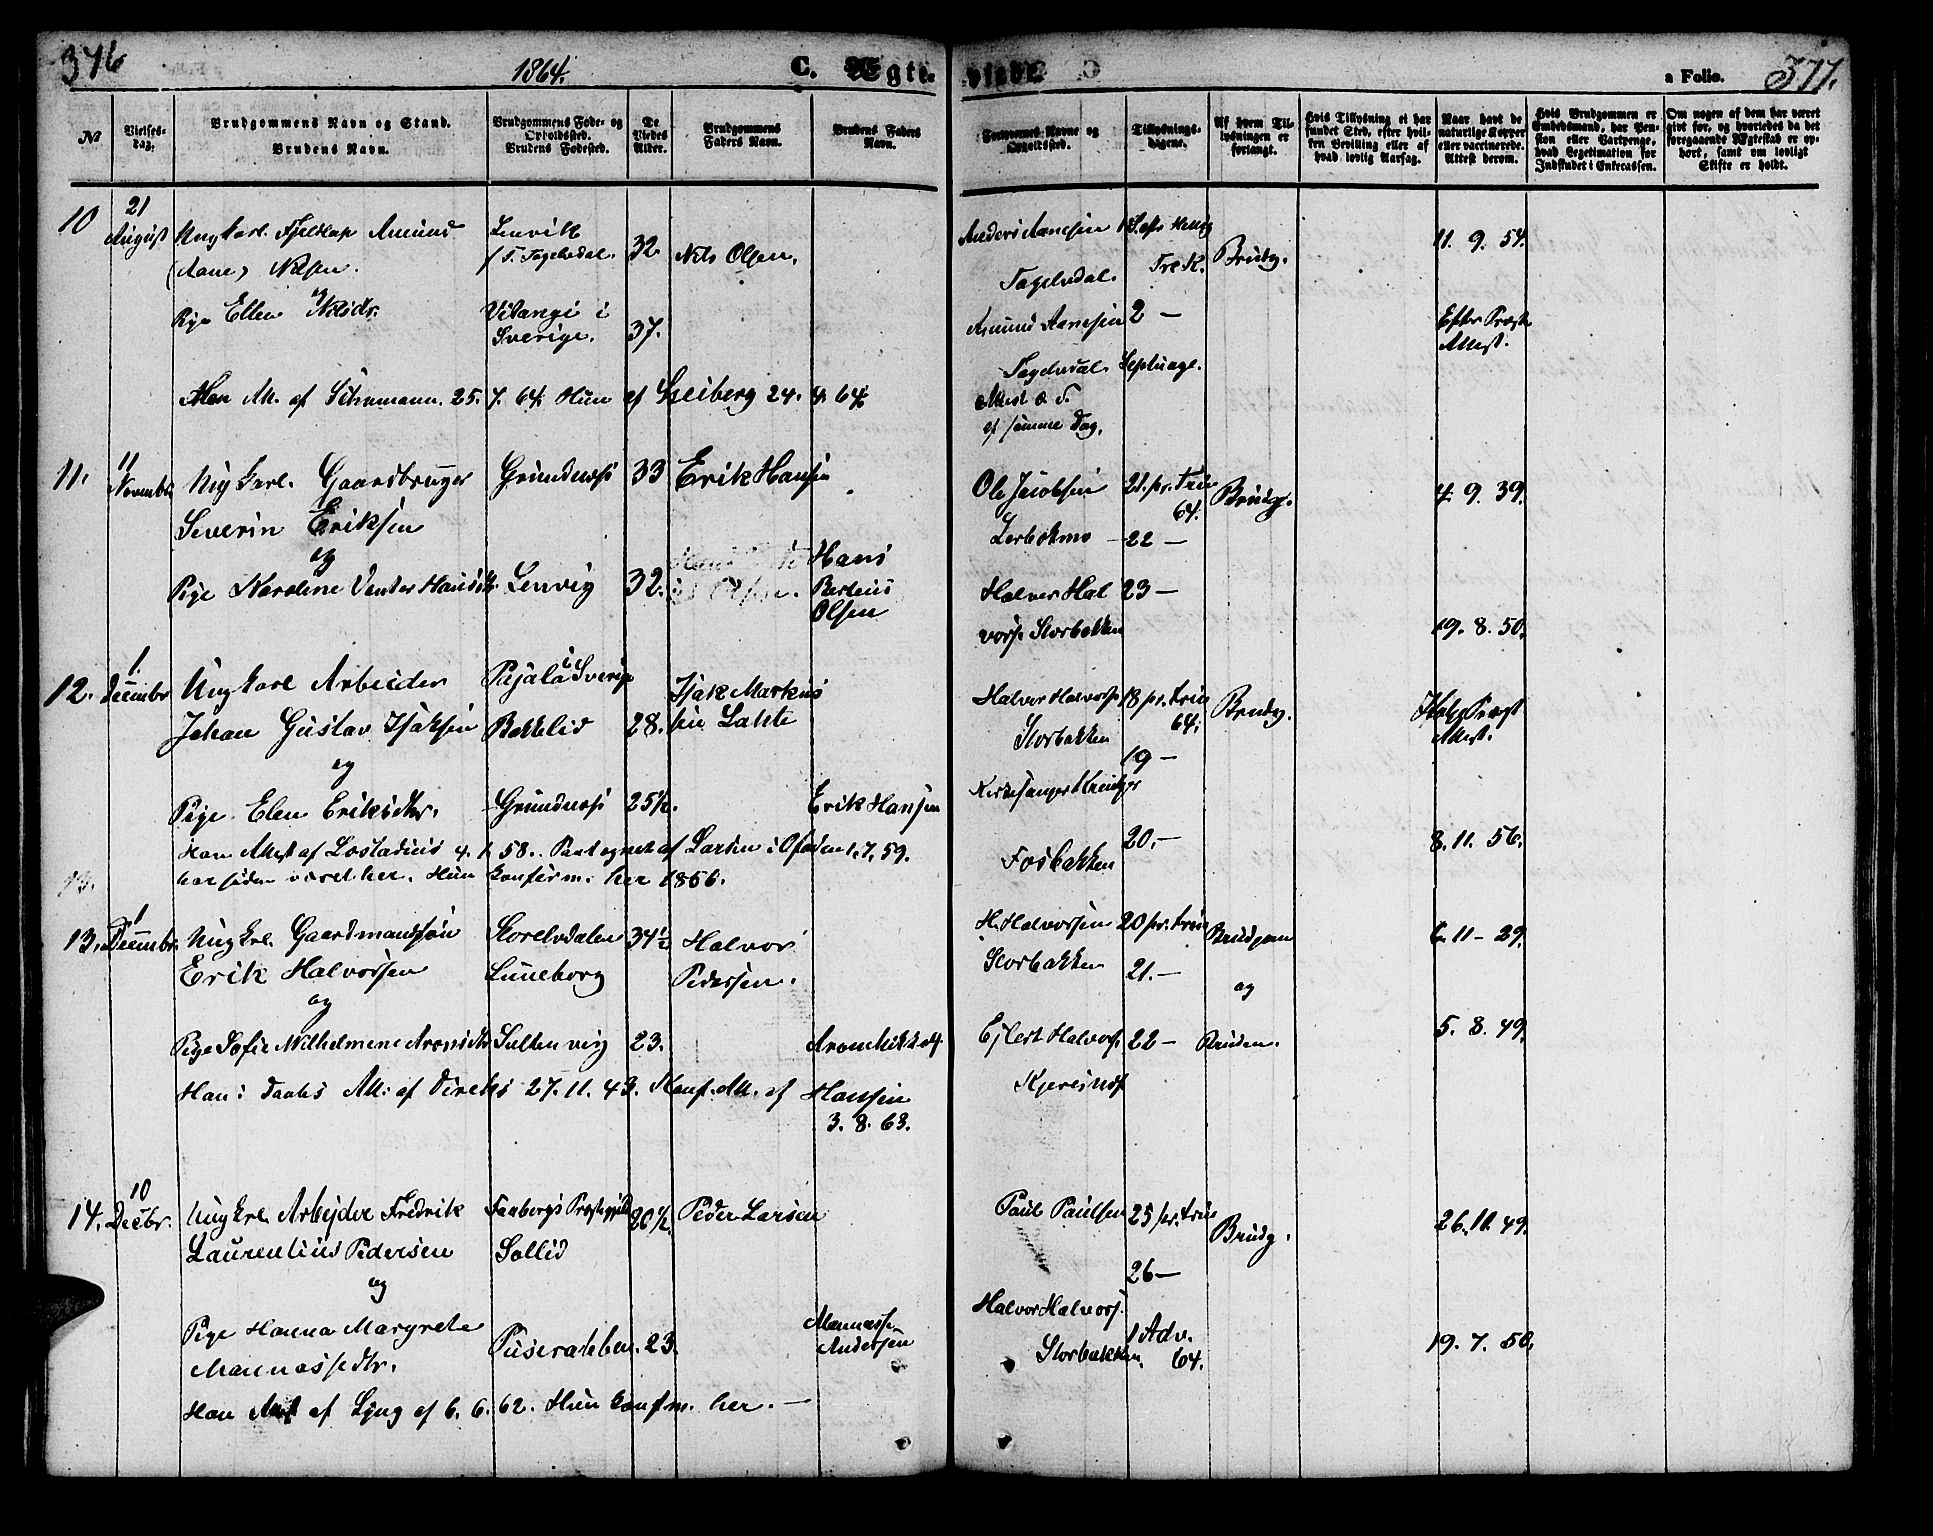 376
1864.
C. Ægte-
viede.
a Folio.
377.
No
Vielses-dag.
Brudgommens Navn og Stand.
Brudens Navn.
Brudgommens Føde- og Opholdssted.
Brudens Fødested.
De Viedes Alder.
Brudgommens Faders Navn.
Brudens Faders Navn.
Forlovernes Navne og Opholdssted.
Tillysnings-dagene.
Af hvem Tillysningen er forlangt.
Hvis Tillysning ei har fundet Sted, efter hvilken Bevilling eller af hvad lovlig Aarsag.
Naar havt de naturlige Kopper eller vaccinerede. Attest derom.
Hvis Brudgommen er Embedsmand, har Pension eller Vartpenge, hvad Legitimation for Indskudet i Enkecassen.
Om nogen af dem har været gift før, og hvorledes da det foregaaende Ægteskab er ophørt, samt om lovligt Skifte er holdt.
10
21 August
Ungkarl. Fjeldlap Amund
(Aane) Nilsen.
og
Pige Ellen Nilsdr.
Lenvik
f. Tagelvdal.
Vitangi i
Sverige.
32
37.
Nils Olsen.
Anders Aanesen
Tagelvdal.
Amund Aanesen
Tagelvdal.
Attest o. d.
af samme Dag.
2 —
Septuage.
Brudg.
11. 9. 54.
Efter Præste
Attest.
Han Att. af Schumann. 25. 7. 64. Hun af 24. 4. 64
11.
11 November
Ungkarl. Gaardbruger
Severin Eriksen
og
Pige Karoline Hansdtr.
Grundnæs
Lenvig
33
32.
Erik Hansen
Hans
Berteus
Olsen
Ole Jacobsen
Halvor Hal
vors. Storbakken
21. p. Trin
64.
22 —
23 —
Brudg.
4. 9. 39.
19. 8. 50.
12.
1. December
Ungkarl Arbeider
Johan Gustav Isaksen
og
Pige Elen Eriksdtr.
Pajala i Sverige
Bakklid
Grundnæs
28.
25½.
Isak Markus
sen Lahte
Erik Hansen
Halvor Halvors.
Storbakken
Kirkesanger
Fosbakken
18 p. trin
64.
19 —
20. —
Brudg.
Præst
Attest.
8. 11. 56.
Han Attest af Lostadius 4. 1. 58. Paategnet af Larsen i Ofoden 1. 7. 59.
har siden været her. Hun konfirm. her 1856.
13.
13.
1 Decembr.
Ungkrl. Gaardmandssøn
Erik Halvorsen
og
Pige Sofie Wilhelmene Aronsdtr
Storelvdalen
Luneborg
34½
23.
Halvor
Pedersen.
Aron Mikkels.
H. Halvorsen
Storbakken
Ejlert Halvors.
20 p. trin
21. —
22 —
Brudgom
og
Bruden.
6. 11 - 29.
5. 8. 49.
Han: Daabs Att: af Dircks 27. 11. 43. Konf. Att. af Hansen
3. 8. 63.
14.
10 Decbr.
Ungkrl. Arbejder Fredrik
Laurentius Pedersen
og
Pige Hanna Margrete
Mannassedtr.
Faabergs Præstegjeld
Sollid
23.
Peder Larsen
Mannasse
Andersen
Paul Paulsen
Halvor Halvors.
Storbakken.
25 p. trin
26 —
1 Adv.
64.
Brudg.
26. 11. 49.
19. 7. 50.
Han Att af Ljug af 6. 6. 62. Hun konfm. her. —